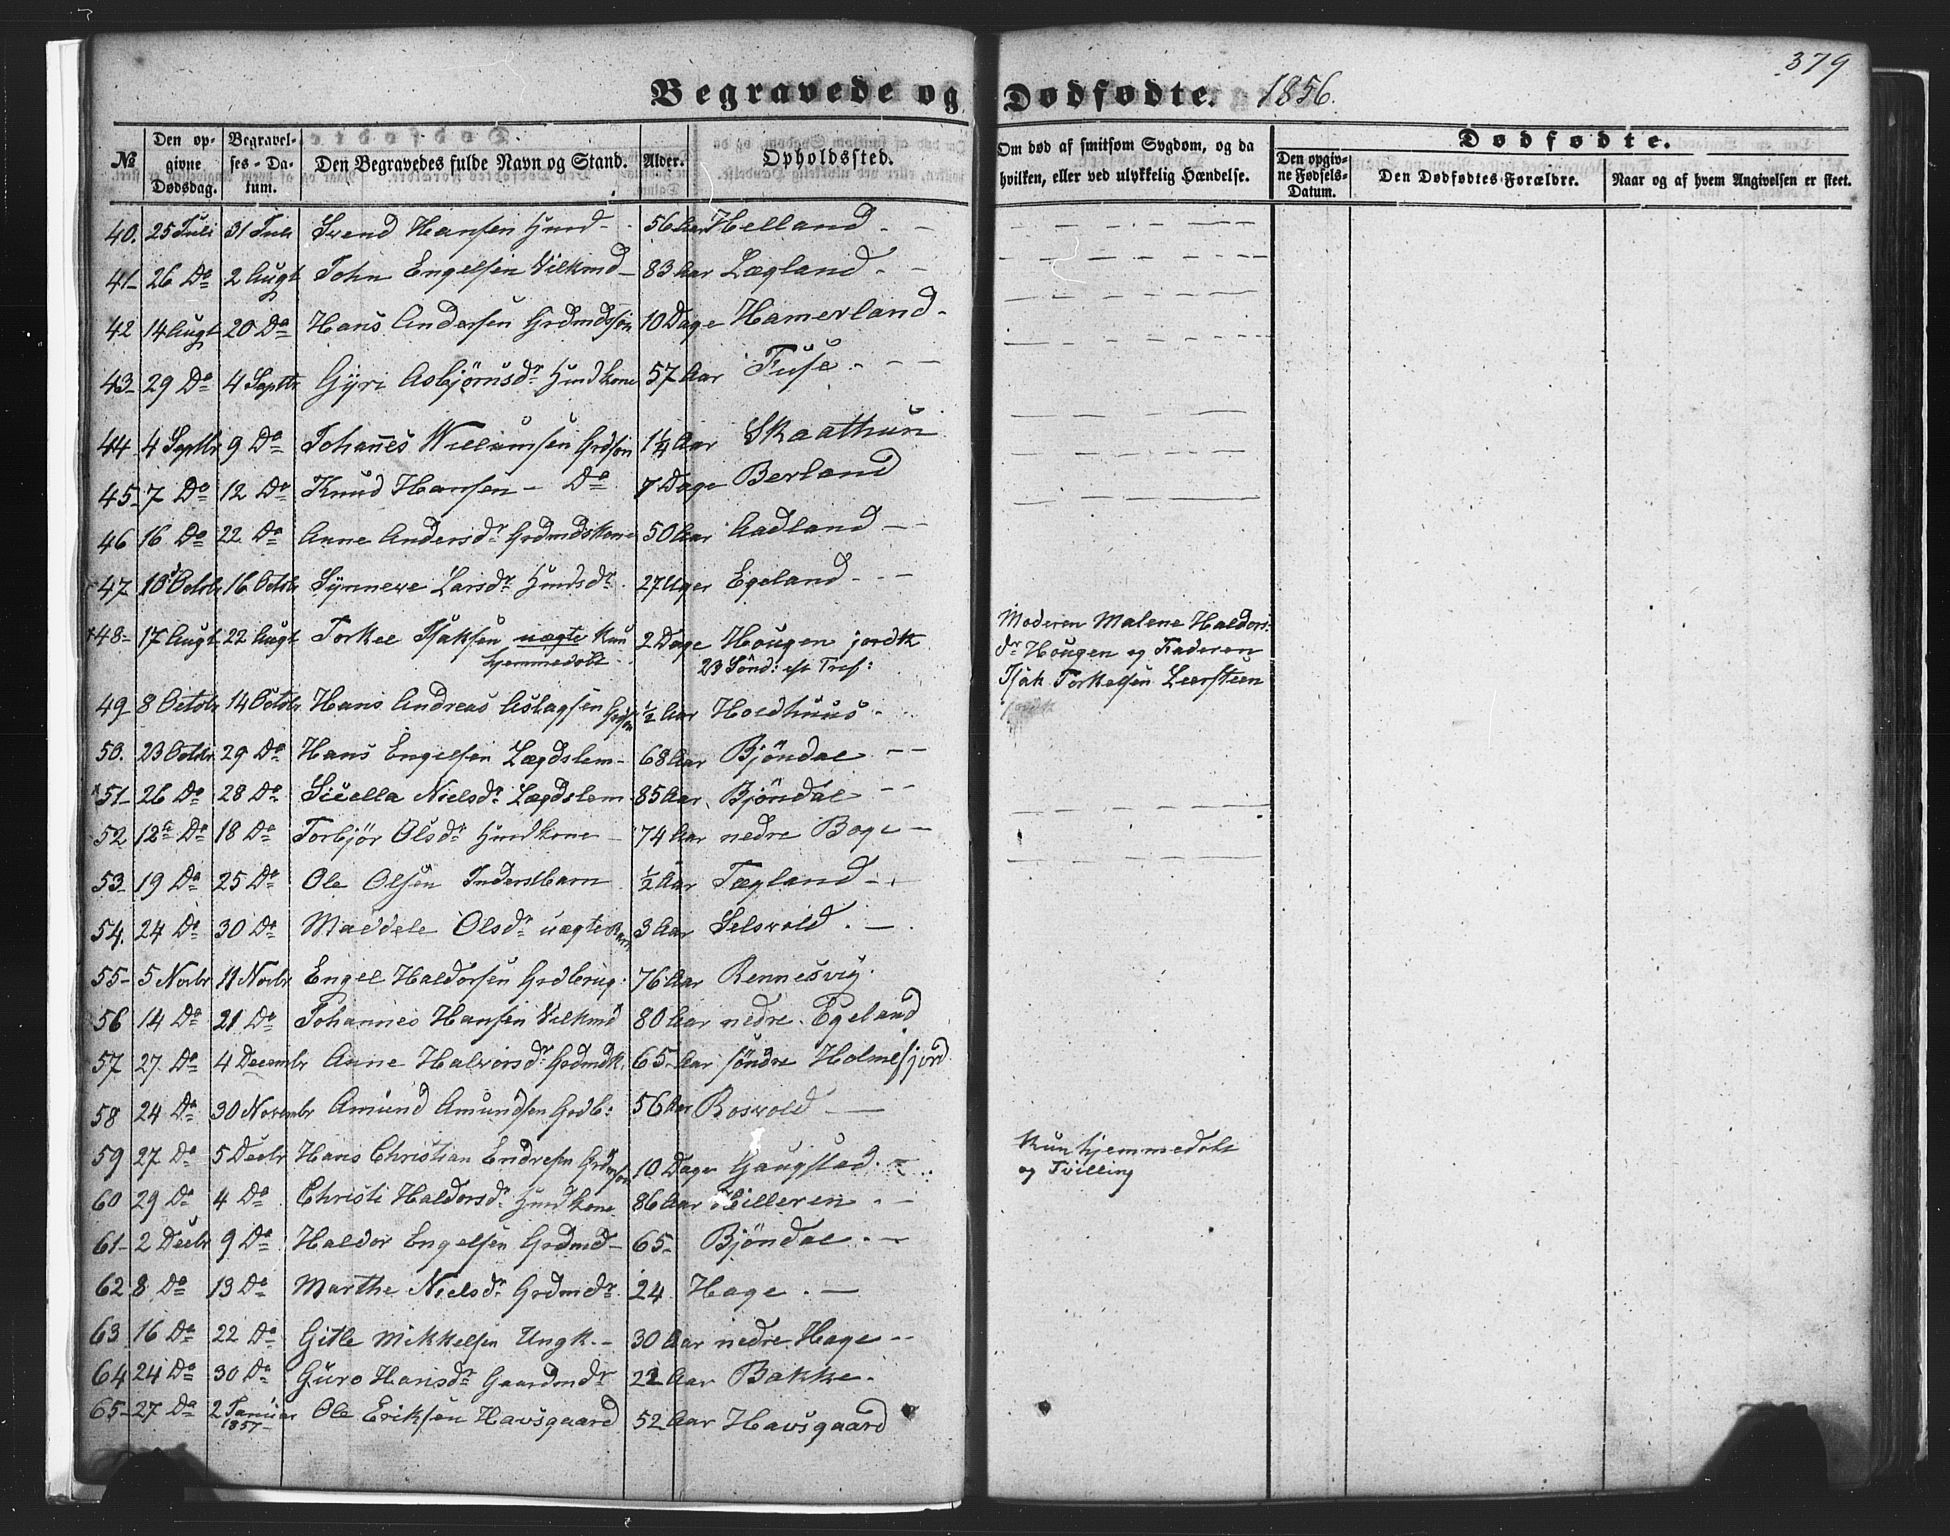 379
Begravede og Dødfødte. 1856.
№ Den opgivne Dødsdag. Begravelses-Datum. Den Begravedes fulde Navn og Stand. Alder. Opholdssted. Om død af smitsom Sygdom, og da hvilken, eller ved ulykkelig Hændelse. Dødfødte. Den opgivne Fødsels-Datum. Den Dødfødtes Forældre. Naar og af hvem Angivelsen er skeet.
40. 25 Juli 31 Juli Svend Hansen Huusmd - 56 Aar Helland - -
41- 26 Do 2 Augt John Engelsen Vilkmd - 83 Aar Lægland - -
42 14 Augt 20 Do Hans Andersen Grdmdssøn 10 Dage Hamerland -
43- 29 Do 4 Septbr Gÿri Asbjörnsdr Huusmdkone 57 Aar Fuse - - -
44 4 Septbr 9 Do Johannes Willumsen Grdsøn 1¼ Aar Skaathun
45- 7 Do 12 Do Knud Hansen - Do 7 Dage Berland
46 16 Do 22 Do Anne Andersdr Grdmdskone 50 Aar Aadland - -
47 10 Octobr 16 Octobr Sÿnneve Larsdr Huusmdsdr 27 Uger Egeland - - -
48- 17 Augt 22 Augt Torkel Isaksen uægte kun hjemmedøbt 2 Dage Hougen jordk 23 Sönd: eft Tref: Moderen Malene Haldorsdr Hougen og Faderen Isak Torkelsen Leersteen
49 8 Octobr 14 Octobr Hans Andreas Aslagsen Grdsøn ½ Aar Holdhuus -
50. 23 Octobr 29 Do Hans Engelsen Lægdslem - 68 Aar Bjöndal - -
51- 26 Do 28 Do Sicella Nielsdr Lægdslem 85 Aar Bjöndal - -
52 12te Do 18 Do Torbjör Olsdr Huusmdkone - 74 Aar nedre Boge -
53- 19 Do 25 Do Ole Olsen Inderstbarn ½ Aar Tægland - -
54. 24 Do 30 Do Maddele Olsdr uægte Barn 3 Aar Selsvold . -
55- 5 Novbr 11 Novbr Engel Haldorsen Grdbrug. 76 Aar Rennesvig.
56 14 Do 21 Do Johannes Hansen Vilkmd 80 Aar nedre Egeland
57 27 Do 4 Decembr Anne Halvorsdr Grdmdk. 65- Aar söndre Holmefjord
58 24 Do 30 Novembr Amund Amundsen Grdb: 56 Aar Rosvold -
59 27 Do 5 Decbr Hans Christian Endresen Grdmsøn 10 Dage Gaugstad - Kun hjemmedøbt og Tvilling
60 29 Do 4 Do Christi Haldorsdr Huusmdkone 86 Aar Hilleren - -
61- 2 Decbr 9 Do Haldor Engelsen Grdmd - 65- Bjöndal . -
62 8 Do 13 Do Marthe Nielsdr Grdmdr 24 Hage . -
63 16 Do 22 Do Gitle Mikkelsen Ungk. - 30 Aar nedre Hage - -
64 24 Do 30 Do Guro Hansdr Gaardmdr 22 Aar Bakke.
65- 27 Do 2 Januar 1857- Ole Eriksen Havsgaard 52 Aar Havsgaard